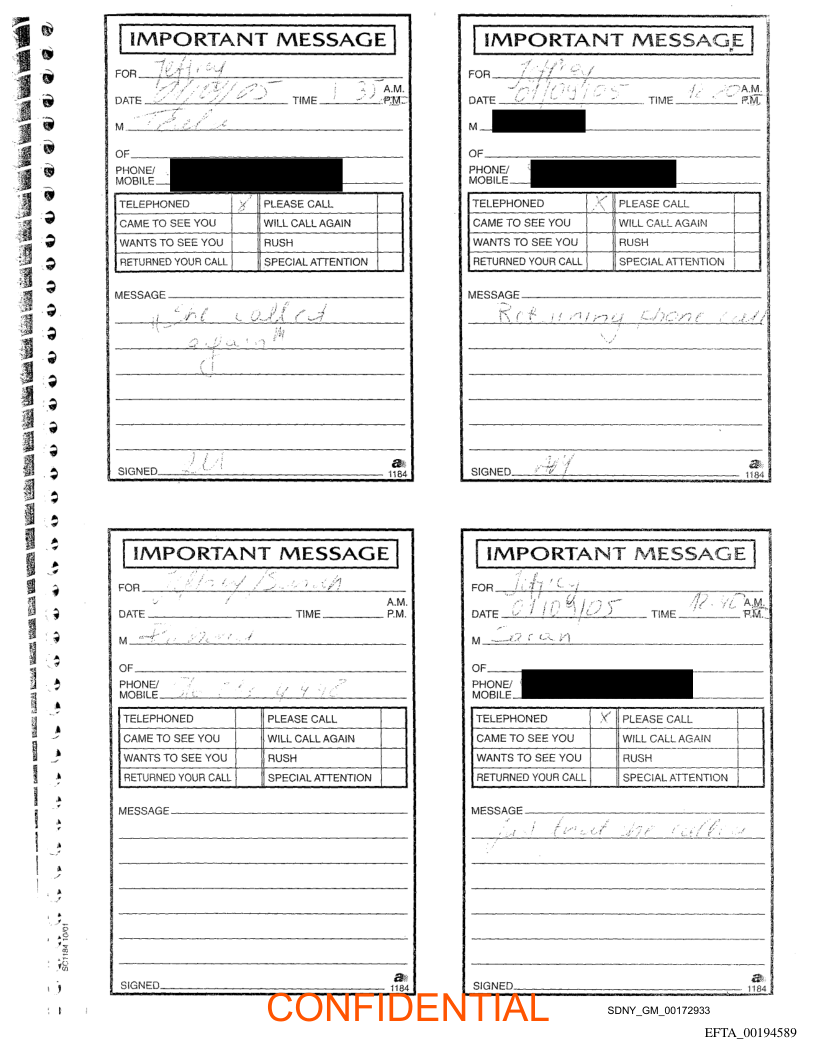 IMPORTANT MESSAGE
FOR Jeffrey
DATE 01/09/05 TIME 1:35 A.M.
P.M.
M
OF
PHONE/
MOBILE
TELEPHONED X PLEASE CALL
CAME TO SEE YOU WILL CALL AGAIN
WANTS TO SEE YOU RUSH
RETURNED YOUR CALL SPECIAL ATTENTION
MESSAGE
"She called
again"
SIGNED
1184
IMPORTANT MESSAGE
FOR Jeffrey
DATE 01/09/05 TIME A.M.
P.M.
M
OF
PHONE/
MOBILE
TELEPHONED X PLEASE CALL
CAME TO SEE YOU WILL CALL AGAIN
WANTS TO SEE YOU RUSH
RETURNED YOUR CALL SPECIAL ATTENTION
MESSAGE
Returning phone call
SIGNED
1184
IMPORTANT MESSAGE
FOR Jeffrey/
DATE TIME A.M.
P.M.
M
OF
PHONE/
MOBILE
TELEPHONED PLEASE CALL
CAME TO SEE YOU WILL CALL AGAIN
WANTS TO SEE YOU RUSH
RETURNED YOUR CALL SPECIAL ATTENTION
MESSAGE
SIGNED
1184
IMPORTANT MESSAGE
FOR Jeffrey
DATE 01/09/05 TIME A.M.
P.M.
M Sarah
OF
PHONE/
MOBILE
TELEPHONED X PLEASE CALL
CAME TO SEE YOU WILL CALL AGAIN
WANTS TO SEE YOU RUSH
RETURNED YOUR CALL SPECIAL ATTENTION
MESSAGE
she called
SIGNED
1184
SC1184 10/01
CONFIDENTIAL
SDNY_GM_00172933
EFTA_00194589